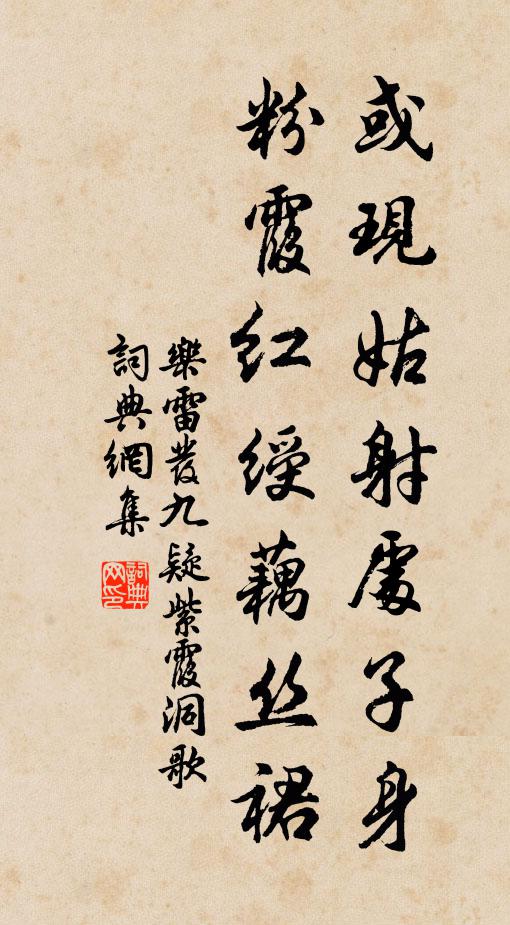 或現姑射處子身
粉霞紅綬藕丝裙
樂雷發九疑紫霞洞歌
詞典網集
詞典网印